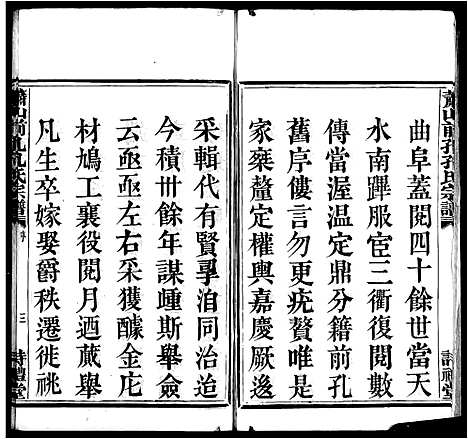 蕭山前孔孔氏宗譜
詩禮堂
曲阜蓋閱四十餘世當天
水南蹕服宦三衢復閱數
傳當渥温定鼎分籍前孔
舊序鐫言勿更疣贅唯是
家乘釐定權輿嘉慶厥逡
采輯代有賢孠洎同治迨
今積卅餘年謀踵斯舉僉
云亟亟左右采獲醵金庀
材鳩工襄役閱月迺蕆舉
凡生卒嫁娶爵秩遷徙祧
蕭山前孔孔氏宗譜
三
詩禮堂